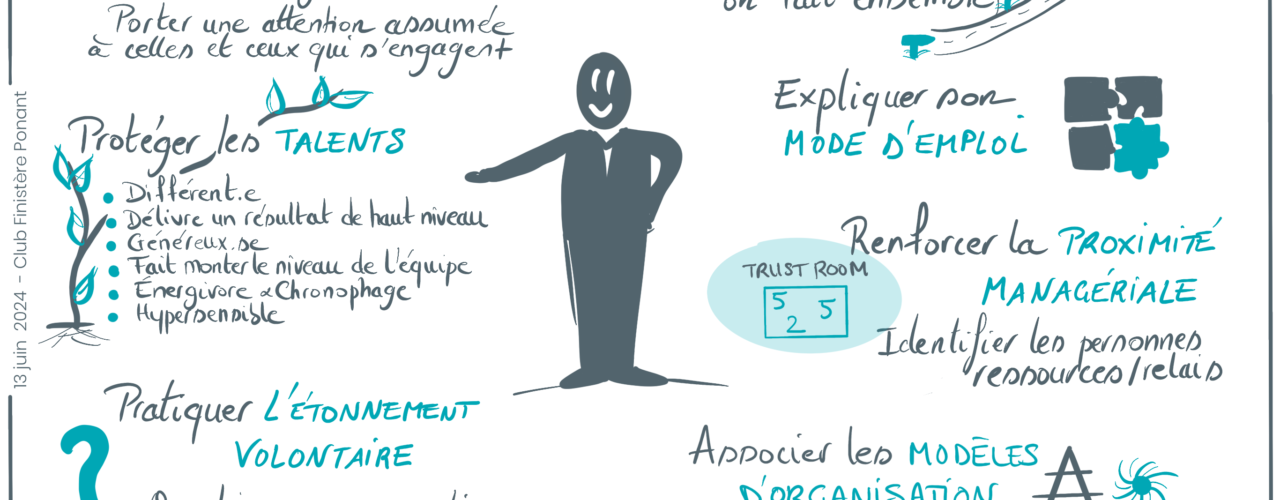 Porter une attention assumée
à celles et ceux qui s'engagent
Protéger les TALENTS
Différent.e
Délivre un résultat de haut niveau
Généreux.se
Fait monter le niveau de l'équipe
Énergivore & Chronophage
Hypersensible
Pratiquer L'ÉTONNEMENT
VOLONTAIRE
13 juin 2024 - Club Finistère Ponant
on fait ensemble
Expliquer son
MODE D'EMPLOI
Renforcer la PROXIMITÉ
MANAGÉRIALE
TRUST ROOM
5 5
2
Identifier les personnes
ressources/relais
Associer les MODÈLES
D'ORGANISATION